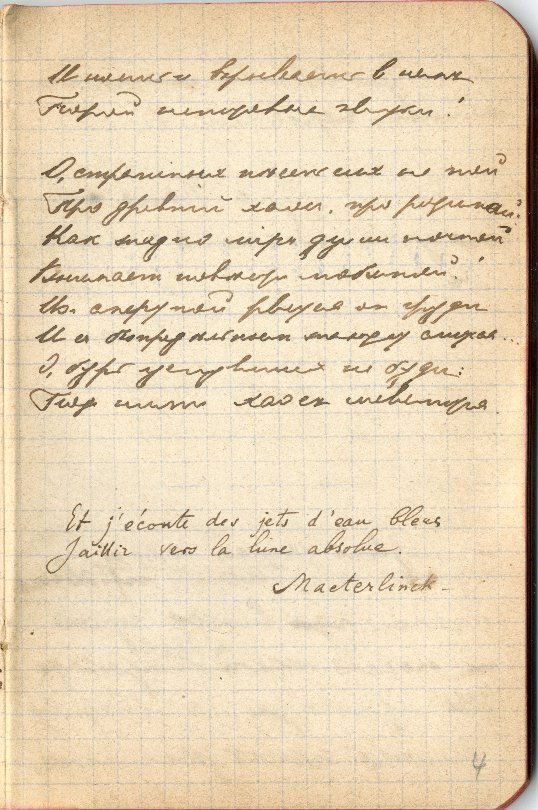 И ноешь и взрываешь в нем
Порой неистовые звуки!
О, страшных песен сих не пой
Про древний хаос, про родимый!
Как жадно мир души ночной
Внимает повести любимой!
Из смертной рвется он груди
И с беспредельным жаждет слиться...
О, бурь уснувших не буди:
Под ними хаос шевелится.
Et j'écoute des jets d'eau bleus
Jaillir vers la lune absolue.
Maeterlinck
4